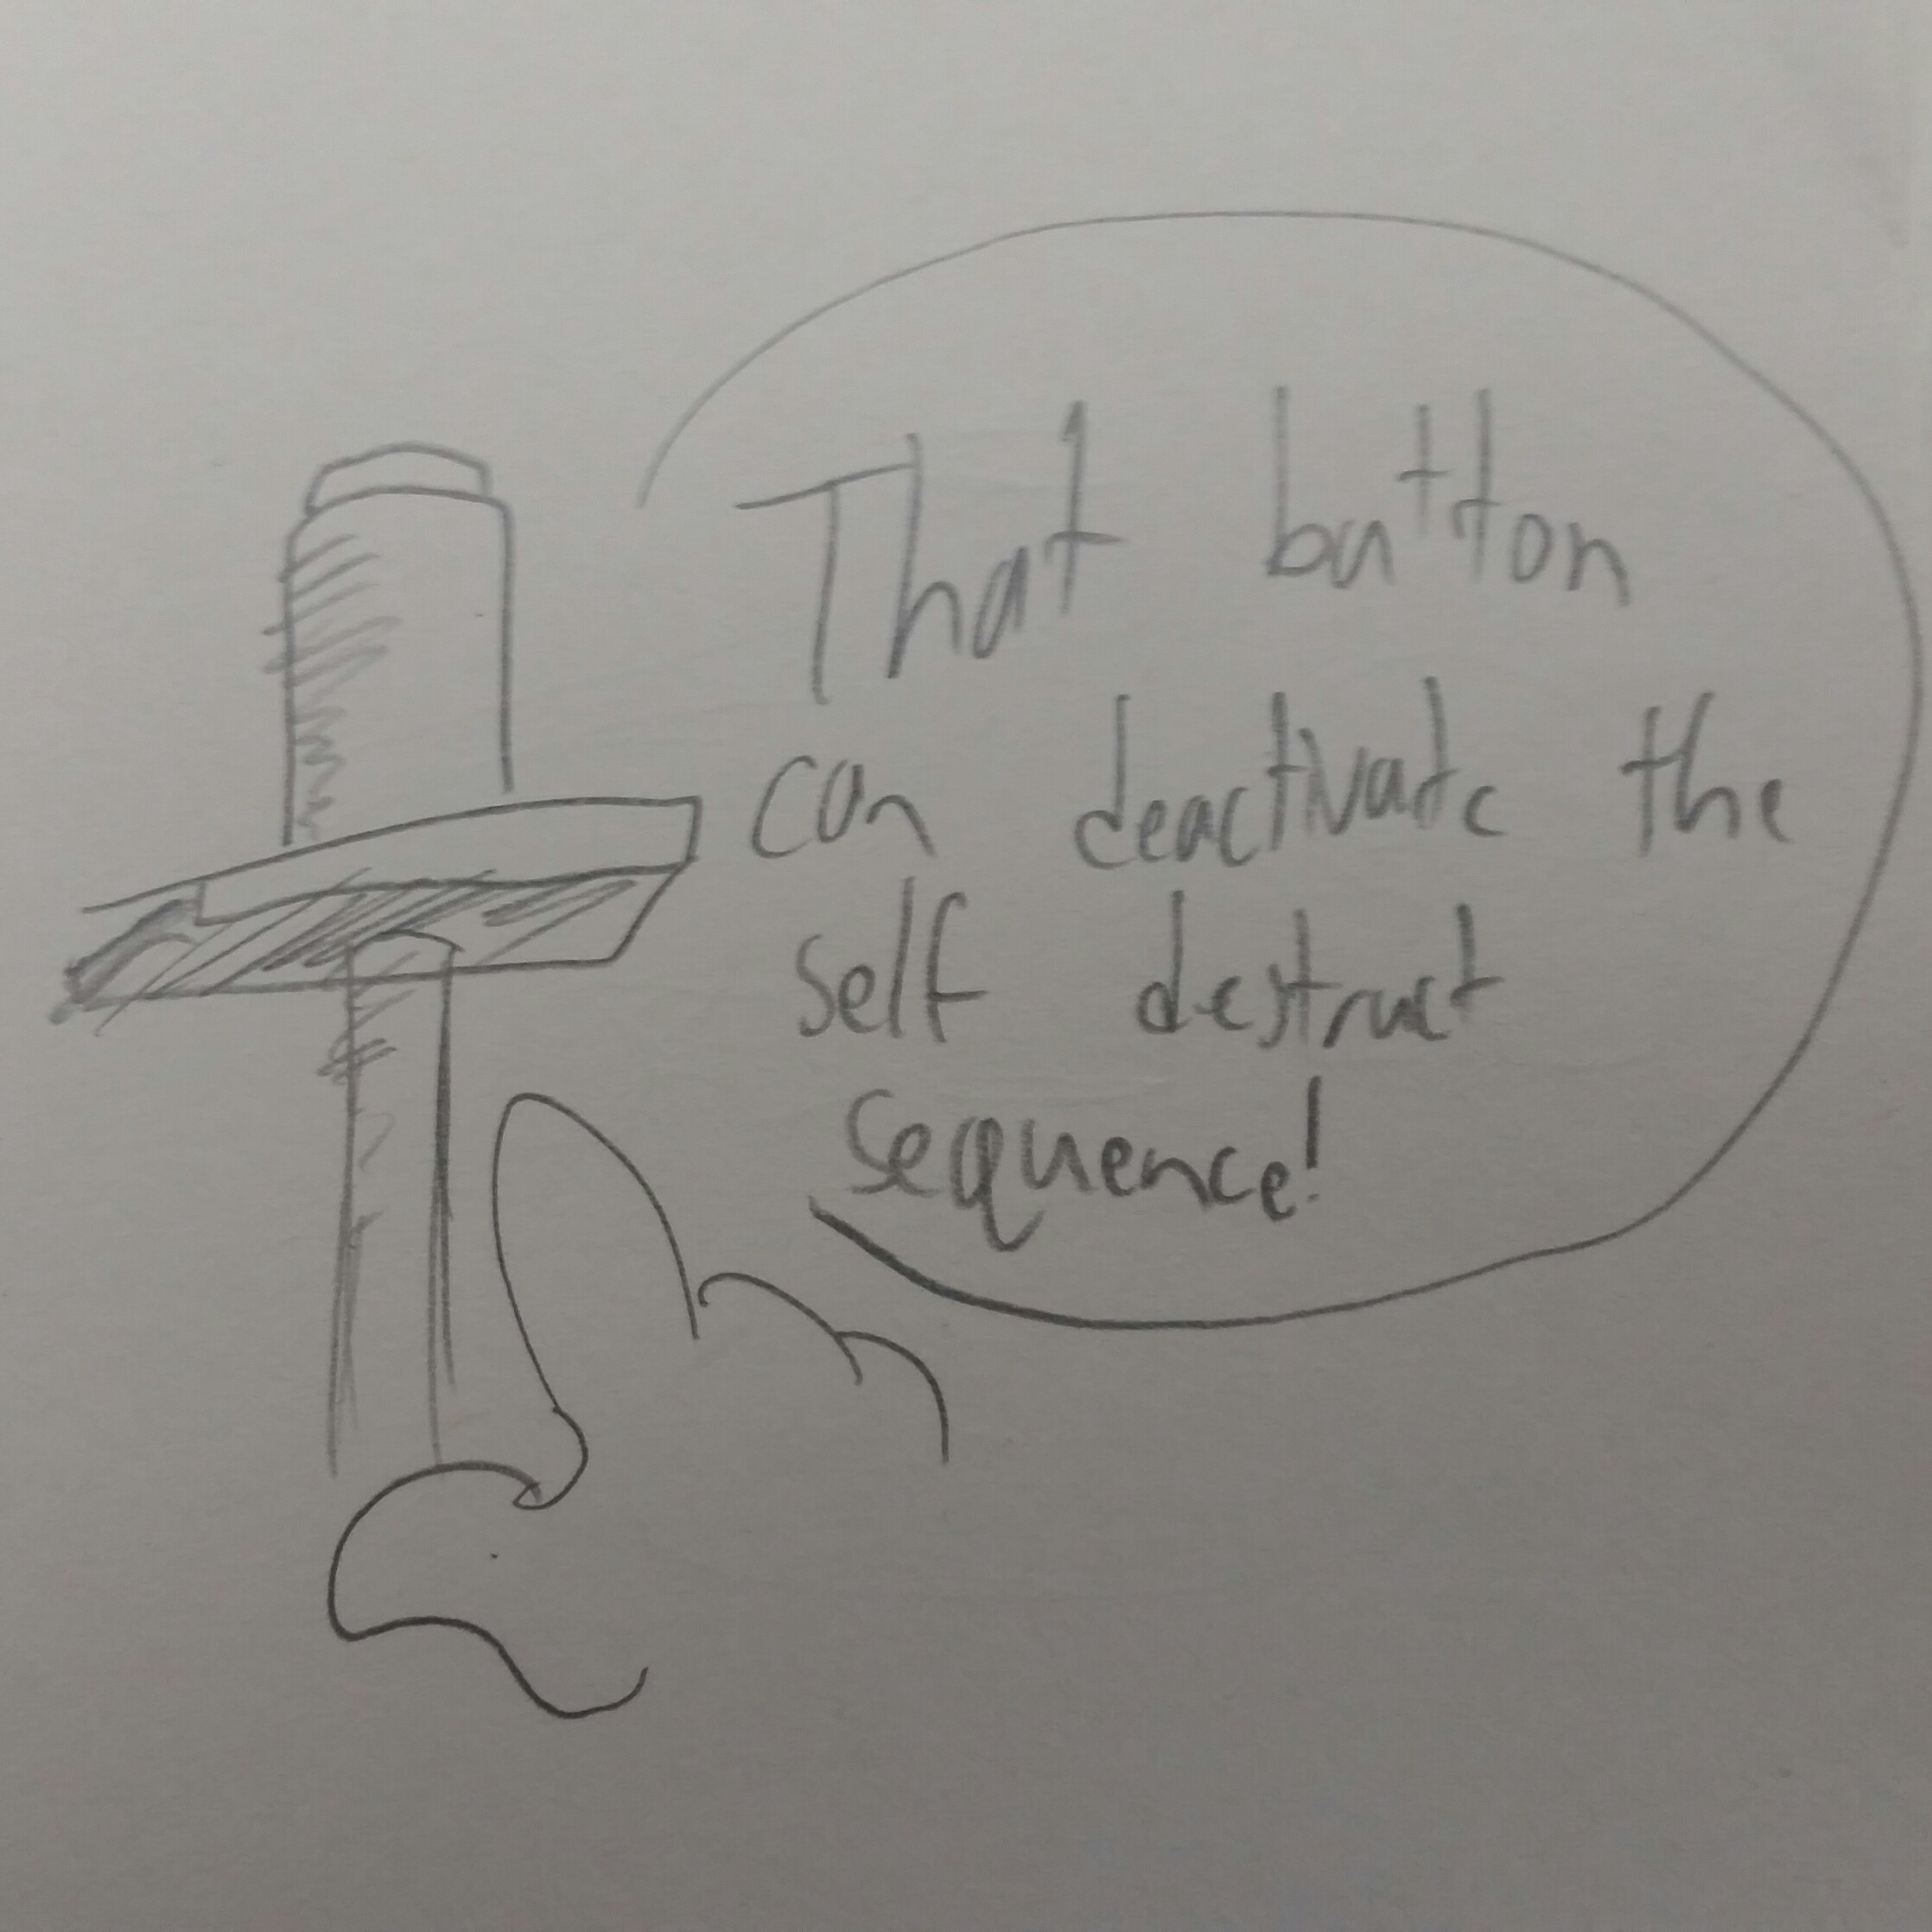 That button
can deactivate the
self destruct
sequence!